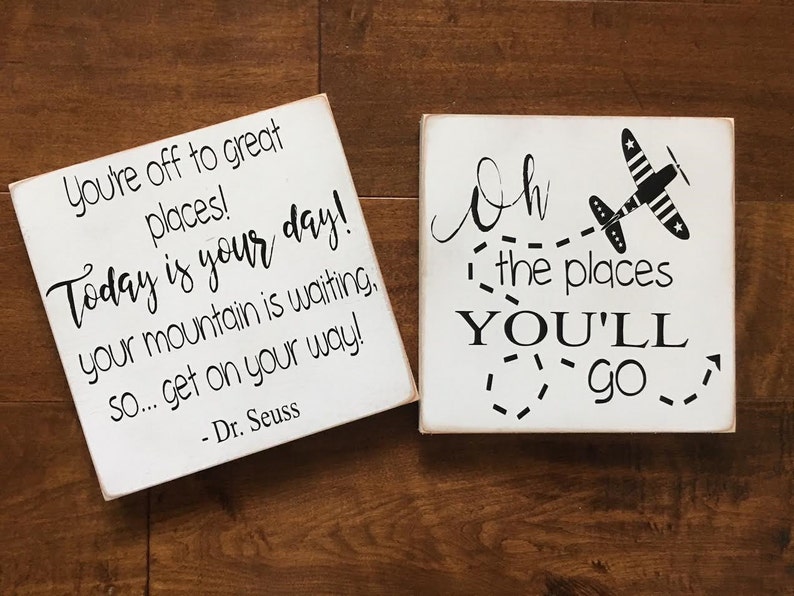 You're off to great
places!
Today is your day!
your mountain is waiting,
so... get on your way!
- Dr. Seuss
Oh
the places
YOU'LL
go